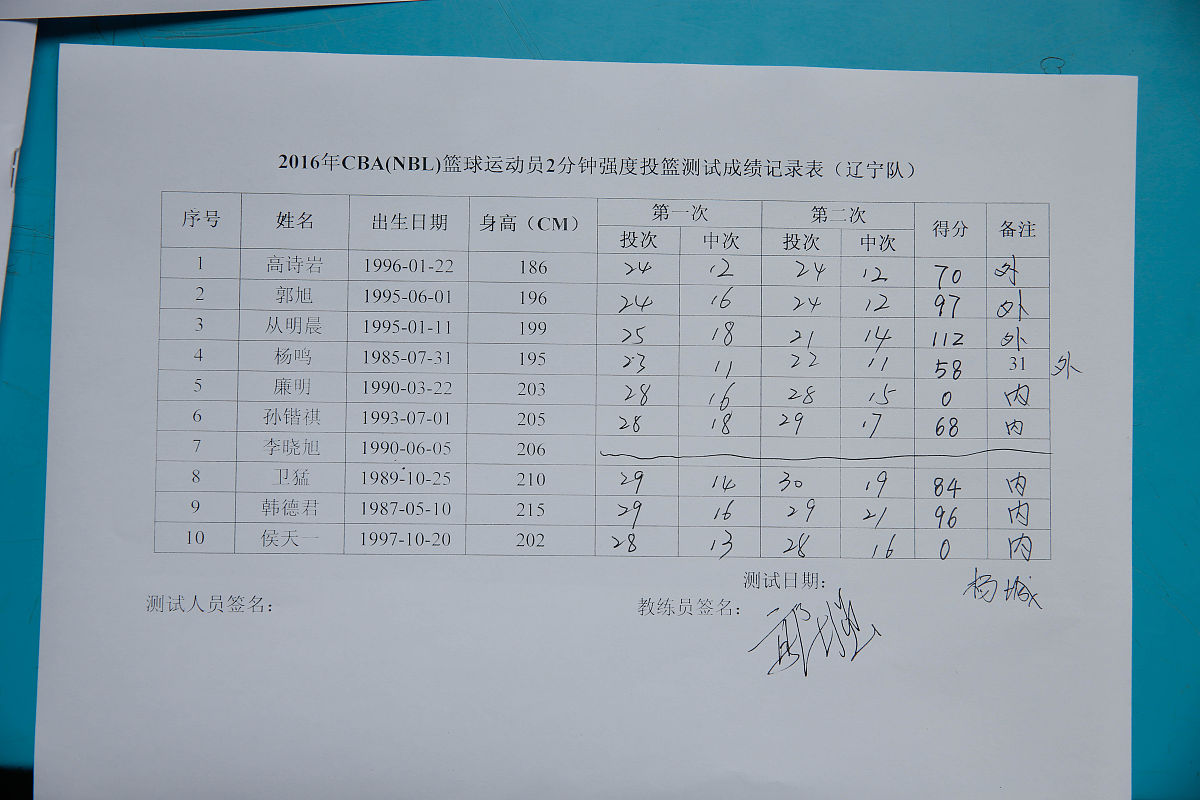 2016年CBA(NBL)篮球运动员2分钟强度投篮测试成绩记录表（辽宁队）
序号 姓名 出生日期 身高（CM） 第一次 第二次 得分 备注
投次 中次 投次 中次
1 高诗岩 1996-01-22 186 24 12 24 12 70 外
2 郭旭 1995-06-01 196 24 16 24 12 97 外
3 从明晨 1995-01-11 199 25 18 21 14 112 外
4 杨鸣 1985-07-31 195 23 11 22 11 58 31 外
5 廉明 1990-03-22 203 28 16 28 15 0 内
6 孙锴祺 1993-07-01 205 28 18 29 17 68 内
7 李晓旭 1990-06-05 206
8 卫猛 1989-10-25 210 29 14 30 19 84 内
9 韩德君 1987-05-10 215 29 16 29 21 96 内
10 侯天一 1997-10-20 202 28 13 28 16 0 内
测试日期：
测试人员签名： 教练员签名：
杨城